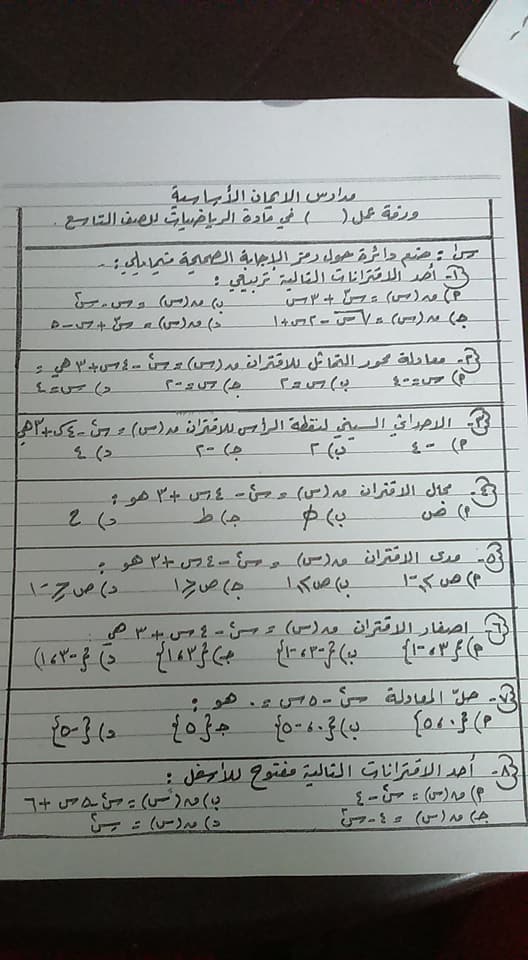 مدارس الايمان الأساسية
ورقة عمل ( ) في مادة الرياضيات للصف التاسع.
س١: ضع دائرة حول رمز الإجابة الصحيحة فيما يلي:
١- أحد الاقترانات التالية تربيعي:
أ) ق(س) = س٢ + ٣س ب) ق(س) = س - س٣
ج) ق(س) = √س - ٢س + ١ د) ق(س) = س٣ + س - ٥
٢- معادلة محور التماثل للاقتران ق(س) = س٢ - ٤س + ٣ هي =
أ) س = -٤ ب) س = ٢ ج) س = -٢ د) س = ٤
٣- الاحداثي السيني لنقطة الرأس للاقتران ق(س) = س٢ - ٤س + ٣ هي
أ) -٤ ب) ٢ ج) -٢ د) ٤
٤- مجال الاقتران ق(س) = س٢ - ٤س + ٣ هو:
أ) ص ب) ∅ ج) ط د) ح
٥- مدى الاقتران ق(س) = س٢ - ٤س + ٣ هو:
أ) ص ≥ -١ ب) ص ≥ ١ ج) ص ≤ ١ د) ص ≤ -١
٦- اصفار الاقتران ق(س) = س٢ - ٤س + ٣ هي
أ) {٣، -١} ب) {-٣، -١} ج) {٣، ١} د) {-٣، ١)
٧- حلّ المعادلة س٢ - ٥س = ٠ هو:
أ) {٠، ٥} ب) {٠، -٥} ج) {٥} د) {-٥}
٨- أحد الاقترانات التالية مفتوح للأسفل:
أ) ق(س) = س٢ - ٤ ب) ق(س) = س٢ - ٥س + ٦
ج) ق(س) = ٤ - س٢ د) ق(س) = س٢